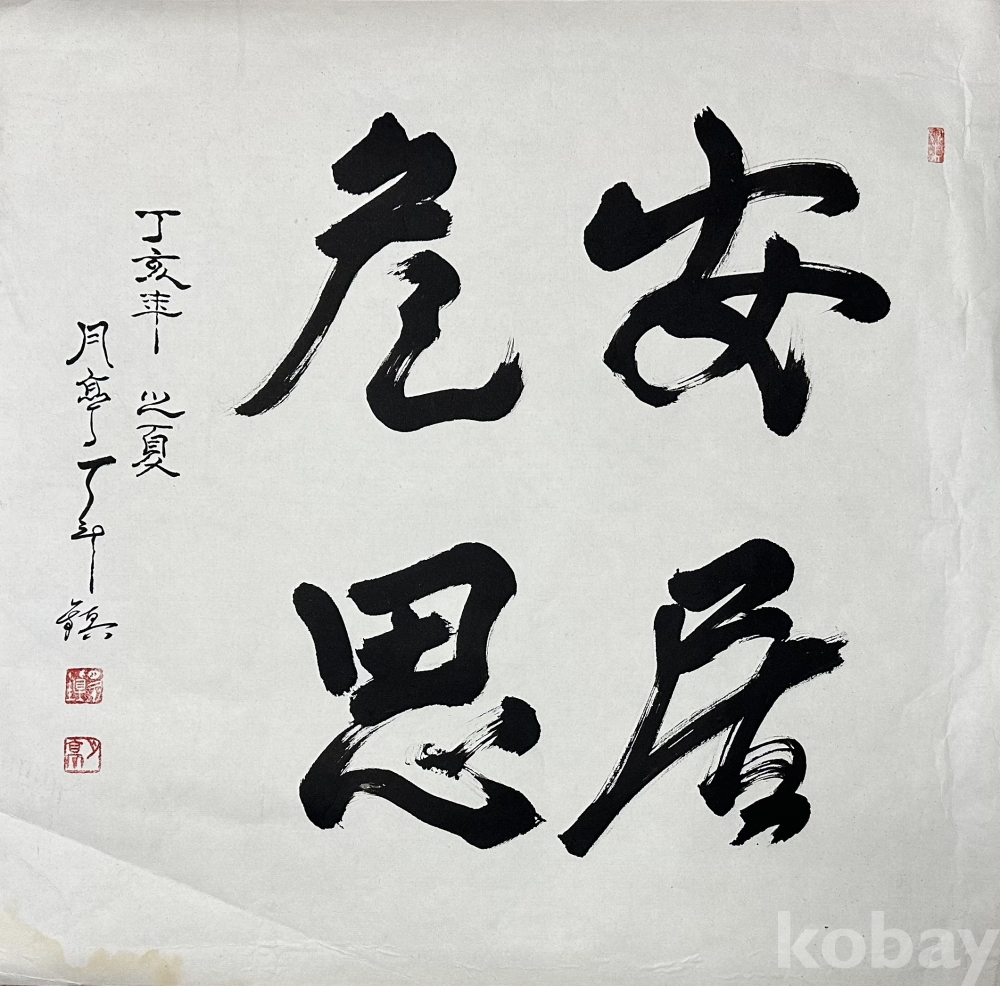 安居
危思
丁亥年之夏
月亭丁年鎮
kobay